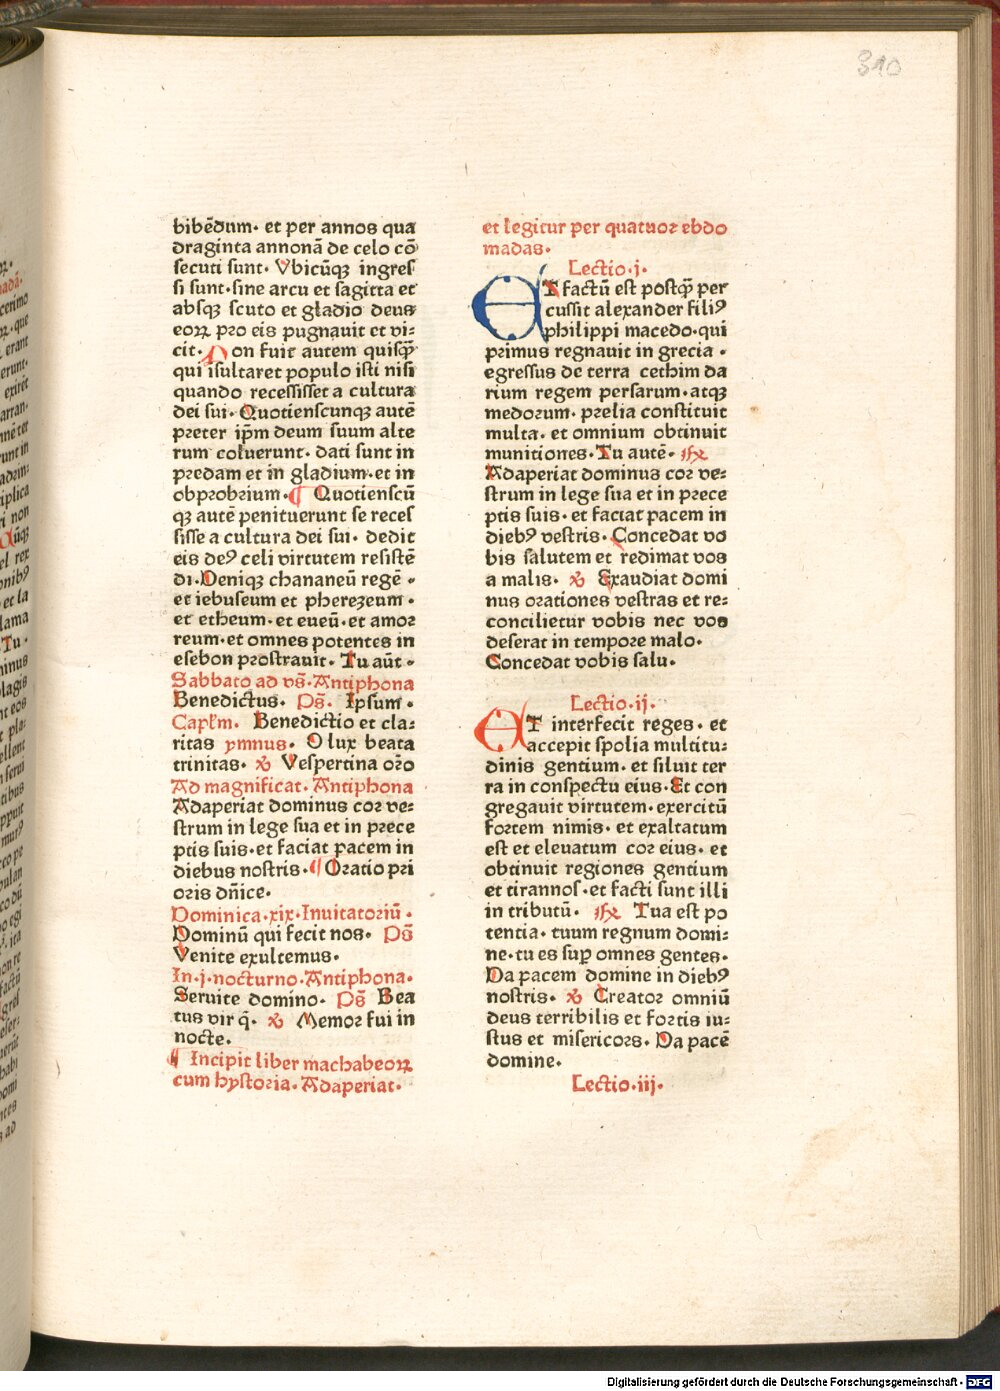 310
bibēdum· et per annos qua
draginta annonā de celo cō
secuti sunt· Vbicūqꝫ ingres
si sunt·sine arcu et sagitta et
absqꝫ scuto et gladio deus
eoꝝ pro eis pugnauit et vi⸗
cit· Non fuit autem quisꝙ̄
qui īsultaret populo isti nisi
quando recessisset a cultura
dei sui· Quotienscunqꝫ autē
preter ip̄m deum suum alte
rum coluerunt· dati sunt in
predam et in gladium·et in
obprobrium·¶ Quotienscū
qꝫ autē penituerunt se reces
sisse a cultura dei sui· dedit
eis deꝰ celi virtutem resistē
di·Deniqꝫ chananeū regē ·
et iebuseum et pherezeum ·
et etheum·et eueū·et amor
reum·et omnes potentes in
esebon prostrauit· Tu aūt ·
Sabbato ad vs̄·Antiphona
Benedictus· Ps̄· Ipsum·
Capl'm· Benedictio et cla⸗
ritas ymnus· O lux beata
trinitas· ℣ Vespertina oro
Ad magnificat·Antiphona
Adaperiat dominus cor ve⸗
strum in lege sua et in prece
ptis suis·et faciat pacem in
diebus nostris·¶ Oratio pri
oris dn̄ice·
Dominica·xix·Inuitatoriū·
Dominū qui fecit nos· Ps̄
Venite exultemus·
In·j·nocturno·Antiphona·
Seruite domino· Ps̄ Bea
tus vir q̄· ℣ Memor fui in
nocte·
¶ Incipit liber machabeoꝝ
cum hystoria·Adaperiat·
et legitur per quatuor ebdo
madas·
Lectio·j·
ET factū est postꝙ̄ per
cussit alexander filiꝰ
philippi macedo·qui
primus regnauit in grecia ·
egressus de terra cethim da
rium regem persarum·atqꝫ
medorum· prelia constituit
multa· et omnium obtinuit
munitiones·Tu autē· ℟
Adaperiat dominus cor ve⸗
strum in lege sua et in prece
ptis suis·et faciat pacem in
diebꝰ vestris· Concedat vo
bis salutem et redimat vos
a malis· ℣ Exaudiat domi
nus orationes vestras et re⸗
concilietur vobis nec vos
deserat in tempore malo·
Concedat vobis salu·
Lectio·ij·
ET interfecit reges· et
accepit spolia multitu⸗
dinis gentium· et siluit ter
ra in conspectu eius·Et con
gregauit virtutem·exercitū
fortem nimis· et exaltatum
est et eleuatum cor eius· et
obtinuit regiones gentium
et tirannos·et facti sunt illi
in tributū· ℟ Tua est po
tentia· tuum regnum domi⸗
ne·tu es sup̄ omnes gentes·
Da pacem domine in diebꝰ
nostris· ℣ Creator omniū
deus terribilis et fortis iu⸗
stus et misericors· Da pacē
domine·
Lectio·iij·
Digitalisierung gefördert durch die Deutsche Forschungsgemeinschaft - DFG